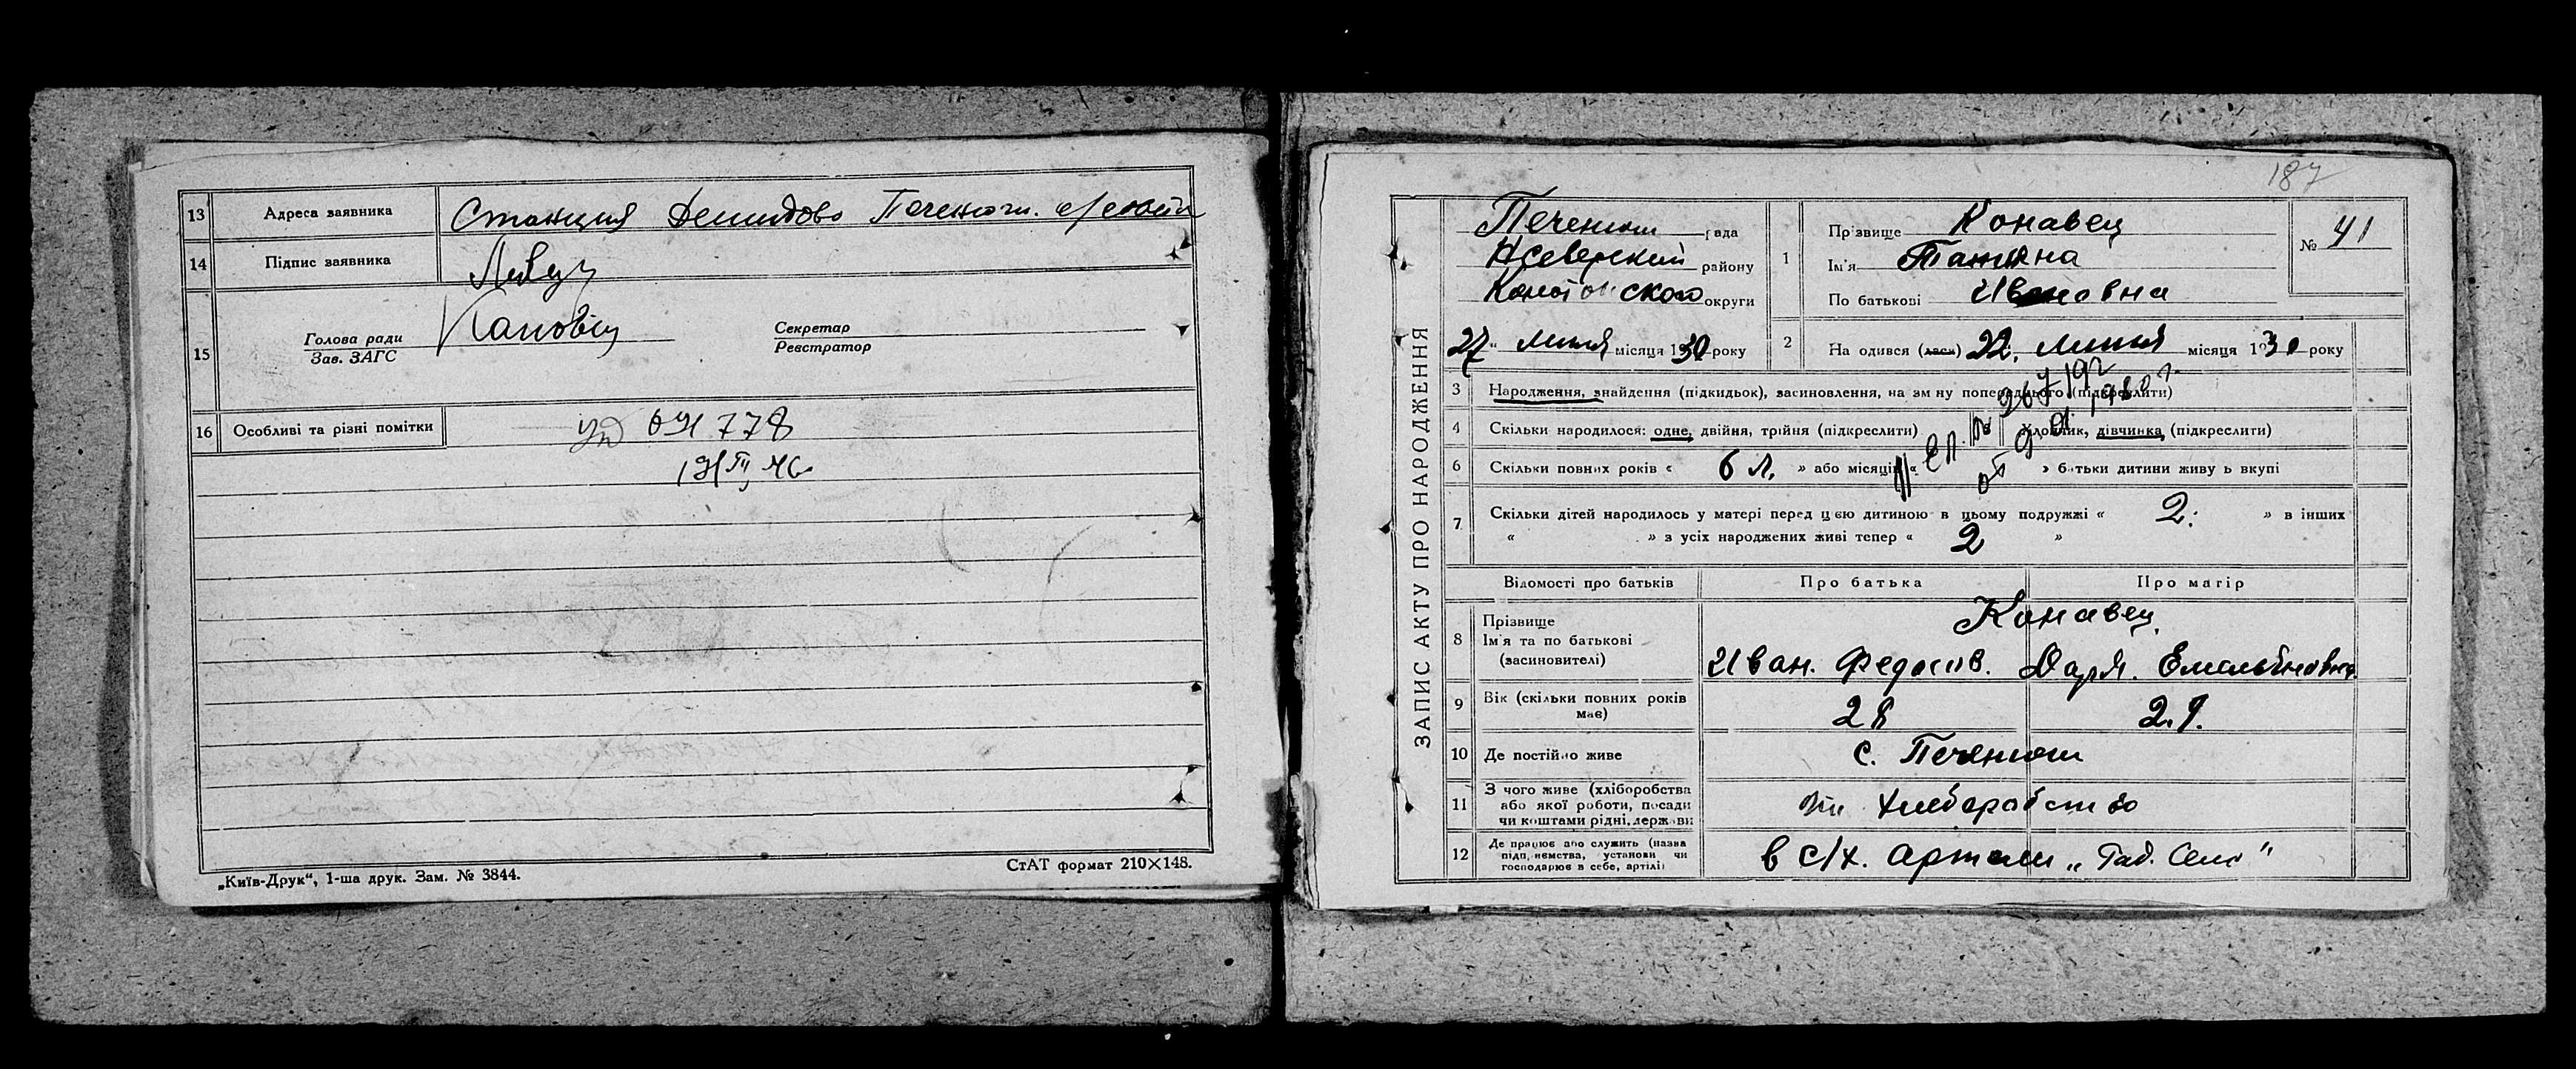 13 Адреса заявника Станция Демидово
14 Підпис заявника
15 Голова ради
Зав. ЗАГС
Секретар
Реєстратор
16 Особливі та різні помітки 778
„Київ-Друк“, 1-ша друк. Зам. № 3844.
СтАТ формат 210×148.
187
ЗАПИС АКТУ ПРО НАРОДЖЕННЯ
Печенюги рада
Нсеверский району
округи
27 " липня місяця 1930 року
1 Прізвище Конавец
Ім'я Татяна
По батькові Ивановна
№ 41
2 На одився (лася) 22. липня місяця 1930 року
3 Народження, знайдення (підкидьок), засиновлення, на зм ну попереднього (підкреслити)
4 Скільки народилося: одне, двійня, трійня (підкреслити) хлопчик, дівчинка (підкреслити)
6 Скільки повних років « 6 л. » або місяців « » батьки дитини живу ь вкупі
7 Скільки дітей народилось у матері перед цією дитиною в цьому подружжі « 2: » в інших
« » з усіх народжених живі тепер « 2 »
Відомості про батьків Про батька Про матір
8 Прізвище
Ім'я та по батькові
(засиновителі)
Конавец
Иван. Федосов. Даря. Емельяновна
9 Вік (скільки повних років
має) 28 29.
10 Де постійно живе с. Печенюги
11 З чого живе (хліборобства
або якої роботи, посади
чи коштами рідні, держави
12 Де працює або служить (назва
підприємства, установи чи
господарює в себе, артілі)
в с/х. артели